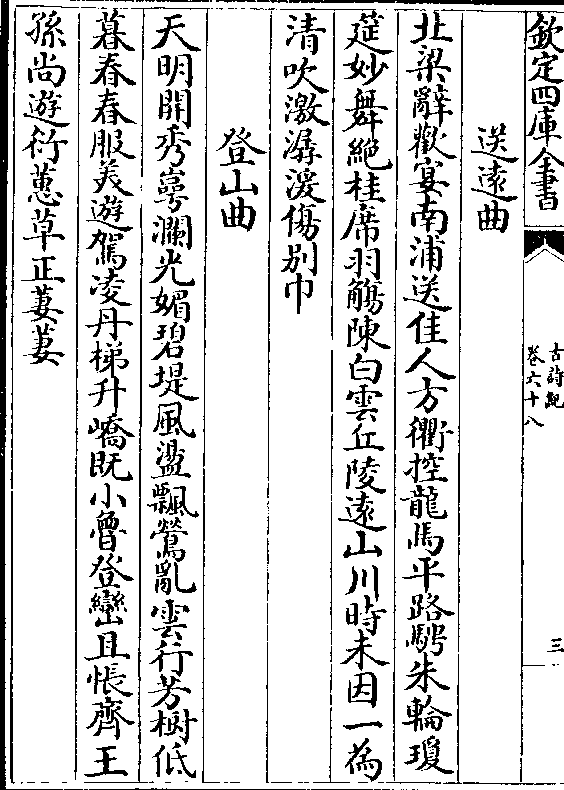 欽定四庫全書
古詩紀
卷六十八
三
送遠曲
北梁辭歡宴南浦送佳人方衢控龍馬平路騁朱輪瓊
筵妙舞絶桂席羽觴陳白雲丘陵遠山川時未因一為
清吹激潺湲傷别巾
登山曲
天明開秀崿瀾光媚碧堤風盪飄鶯亂雲行芳樹低
暮春春服美遊駕凌丹梯升嶠既小魯登巒且悵齊王
孫尚遊衍蕙草正萋萋